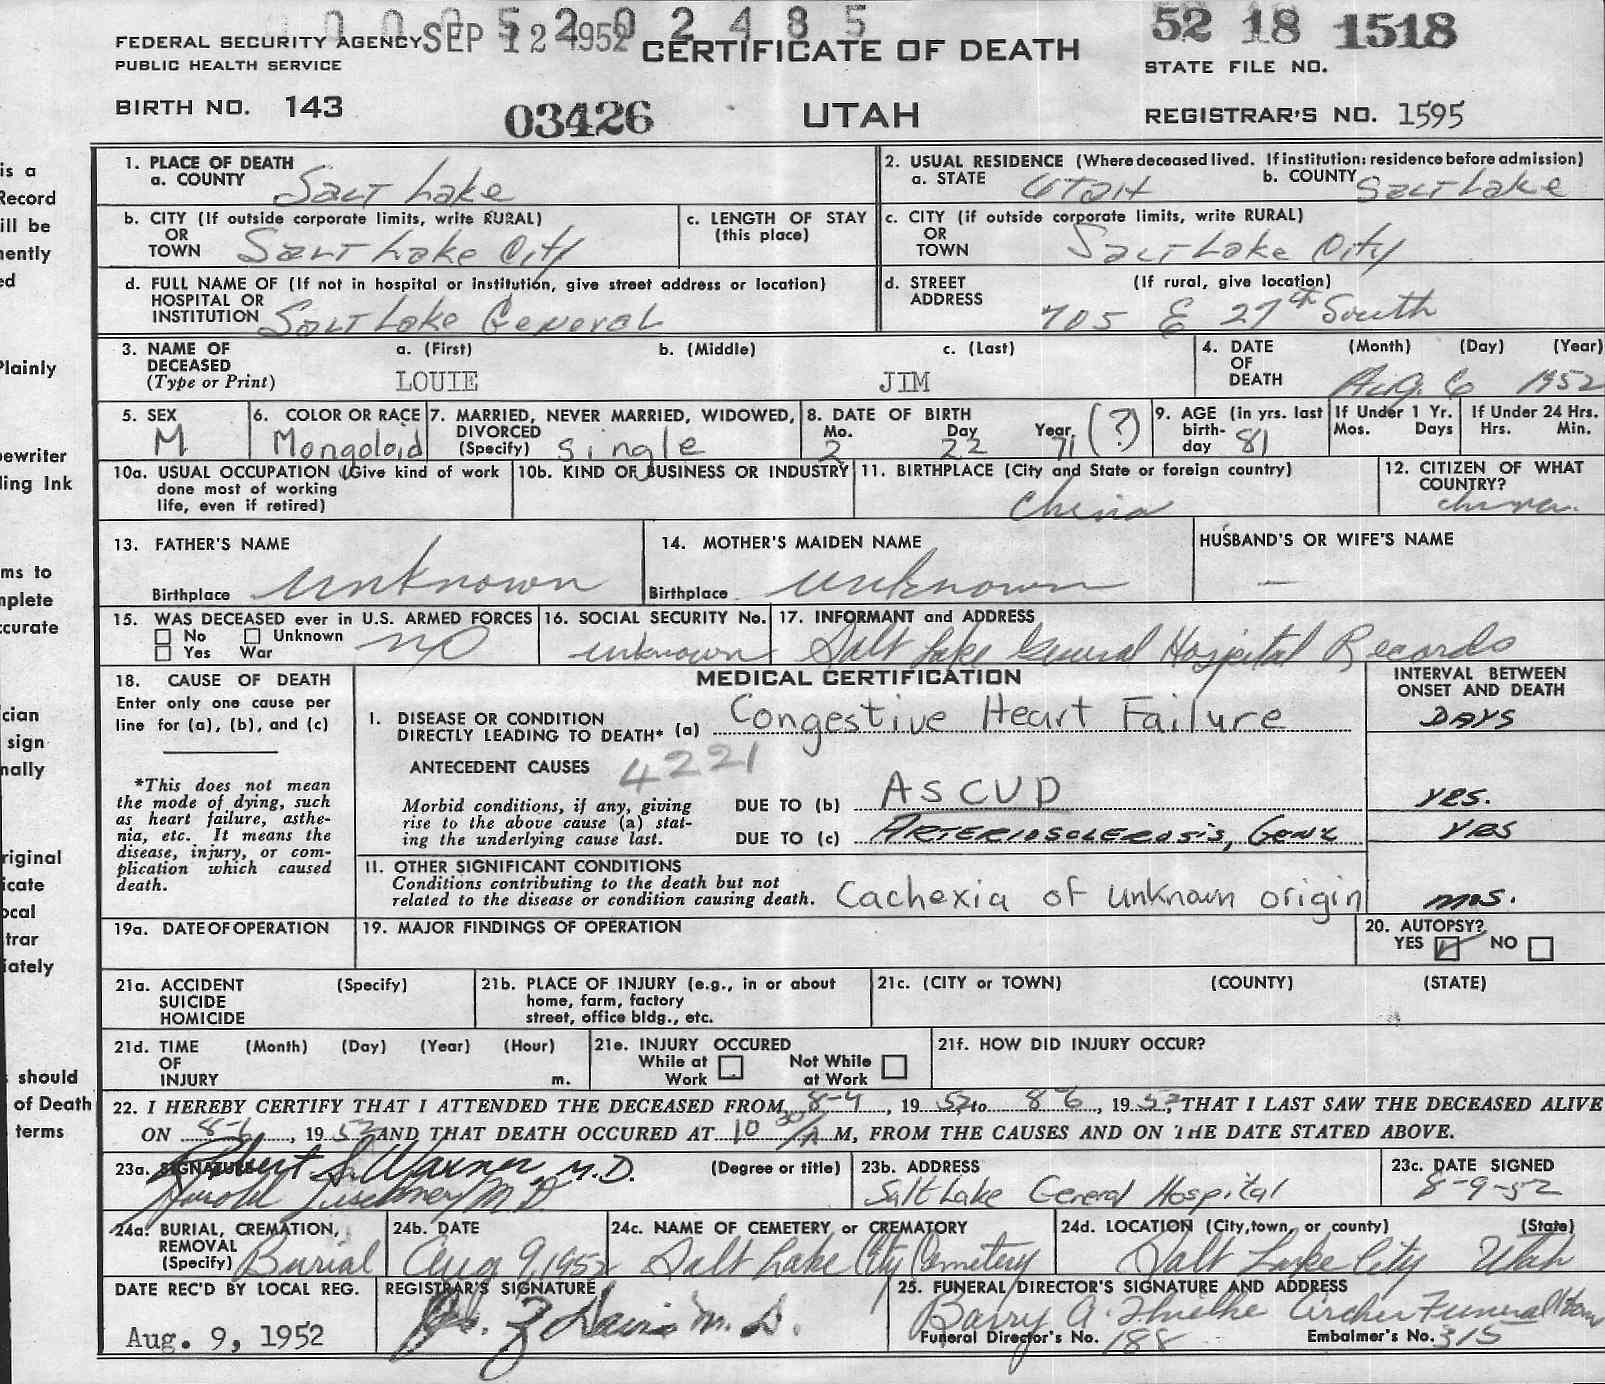 0005202485
52 18 1518
FEDERAL SECURITY AGENCY SEP 12 1952 CERTIFICATE OF DEATH
PUBLIC HEALTH SERVICE STATE FILE NO.
BIRTH NO. 143 03426 UTAH REGISTRAR'S NO. 1595
is a
Record
ill be
nently
ed
Plainly
ewriter
ling Ink
ms to
mplete
ccurate
cian
sign
nally
riginal
icate
ocal
trar
iately
should
of Death
terms
1. PLACE OF DEATH
a. COUNTY Salt Lake
2. USUAL RESIDENCE (Where deceased lived. If institution: residence before admission)
a. STATE Utah b. COUNTY Salt Lake
b. CITY (If outside corporate limits, write RURAL)
OR
TOWN Salt Lake City
c. LENGTH OF STAY
(this place)
c. CITY (if outside corporate limits, write RURAL)
OR
TOWN Salt Lake City
d. FULL NAME OF (If not in hospital or institution, give street address or location)
HOSPITAL OR
INSTITUTION Salt Lake General
d. STREET (If rural, give location)
ADDRESS
705 E 27th South
3. NAME OF a. (First) b. (Middle) c. (Last)
DECEASED
(Type or Print) LOUIE JIM
4. DATE (Month) (Day) (Year)
OF
DEATH Aug. 6 1952
5. SEX
M
6. COLOR OR RACE
Mongoloid
7. MARRIED, NEVER MARRIED, WIDOWED,
DIVORCED
(Specify) Single
8. DATE OF BIRTH
Mo. Day Year
2 22 71 (?)
9. AGE (in yrs. last
birth-
day 81
If Under 1 Yr.
Mos. Days
If Under 24 Hrs.
Hrs. Min.
10a. USUAL OCCUPATION (Give kind of work
done most of working
life, even if retired)
10b. KIND OF BUSINESS OR INDUSTRY
11. BIRTHPLACE (City and State or foreign country)
China
12. CITIZEN OF WHAT
COUNTRY?
China.
13. FATHER'S NAME
Birthplace unknown
14. MOTHER'S MAIDEN NAME
Birthplace unknown
HUSBAND'S OR WIFE'S NAME
—
15. WAS DECEASED ever in U.S. ARMED FORCES
No Unknown
Yes War
NO
16. SOCIAL SECURITY No.
unknown
17. INFORMANT and ADDRESS
Salt Lake General Hospital Records
18. CAUSE OF DEATH
Enter only one cause per
line for (a), (b), and (c)
*This does not mean
the mode of dying, such
as heart failure, asthe-
nia, etc. It means the
disease, injury, or com-
plication which caused
death.
MEDICAL CERTIFICATION
INTERVAL BETWEEN
ONSET AND DEATH
I. DISEASE OR CONDITION
DIRECTLY LEADING TO DEATH* (a) Congestive Heart Failure DAYS
ANTECEDENT CAUSES 4221
Morbid conditions, if any, giving
rise to the above cause (a) stat-
ing the underlying cause last.
DUE TO (b) ASCVD yrs.
DUE TO (c) Arteriosclerosis, Genl yrs
II. OTHER SIGNIFICANT CONDITIONS
Conditions contributing to the death but not
related to the disease or condition causing death. Cachexia of unknown origin mos.
19a. DATE OF OPERATION
19. MAJOR FINDINGS OF OPERATION
20. AUTOPSY?
YES ✓ NO
21a. ACCIDENT (Specify)
SUICIDE
HOMICIDE
21b. PLACE OF INJURY (e.g., in or about
home, farm, factory
street, office bldg., etc.
21c. (CITY or TOWN) (COUNTY) (STATE)
21d. TIME (Month) (Day) (Year) (Hour)
OF
INJURY m.
21e. INJURY OCCURED
While at Work Not While at Work
21f. HOW DID INJURY OCCUR?
22. I HEREBY CERTIFY THAT I ATTENDED THE DECEASED FROM 8-4, 1952 to 8-6, 1952, THAT I LAST SAW THE DECEASED ALIVE
ON 8-6, 1952 AND THAT DEATH OCCURED AT 10 00 A M, FROM THE CAUSES AND ON THE DATE STATED ABOVE.
23a. SIGNATURE (Degree or title)
Robert S. Warner, M.D.
Harold M D
23b. ADDRESS
Salt Lake General Hospital
23c. DATE SIGNED
8-9-52
24a. BURIAL, CREMATION,
REMOVAL
(Specify) Burial
24b. DATE
Aug 9, 1952
24c. NAME OF CEMETERY or CREMATORY
Salt Lake City Cemetery
24d. LOCATION (City, town, or county) (State)
Salt Lake City Utah
DATE REC'D BY LOCAL REG.
Aug. 9, 1952
REGISTRAR'S SIGNATURE
M. D.
25. FUNERAL DIRECTOR'S SIGNATURE AND ADDRESS
Barry A. Thielke Archer Funeral Home
Funeral Director's No. 188 Embalmer's No. 315